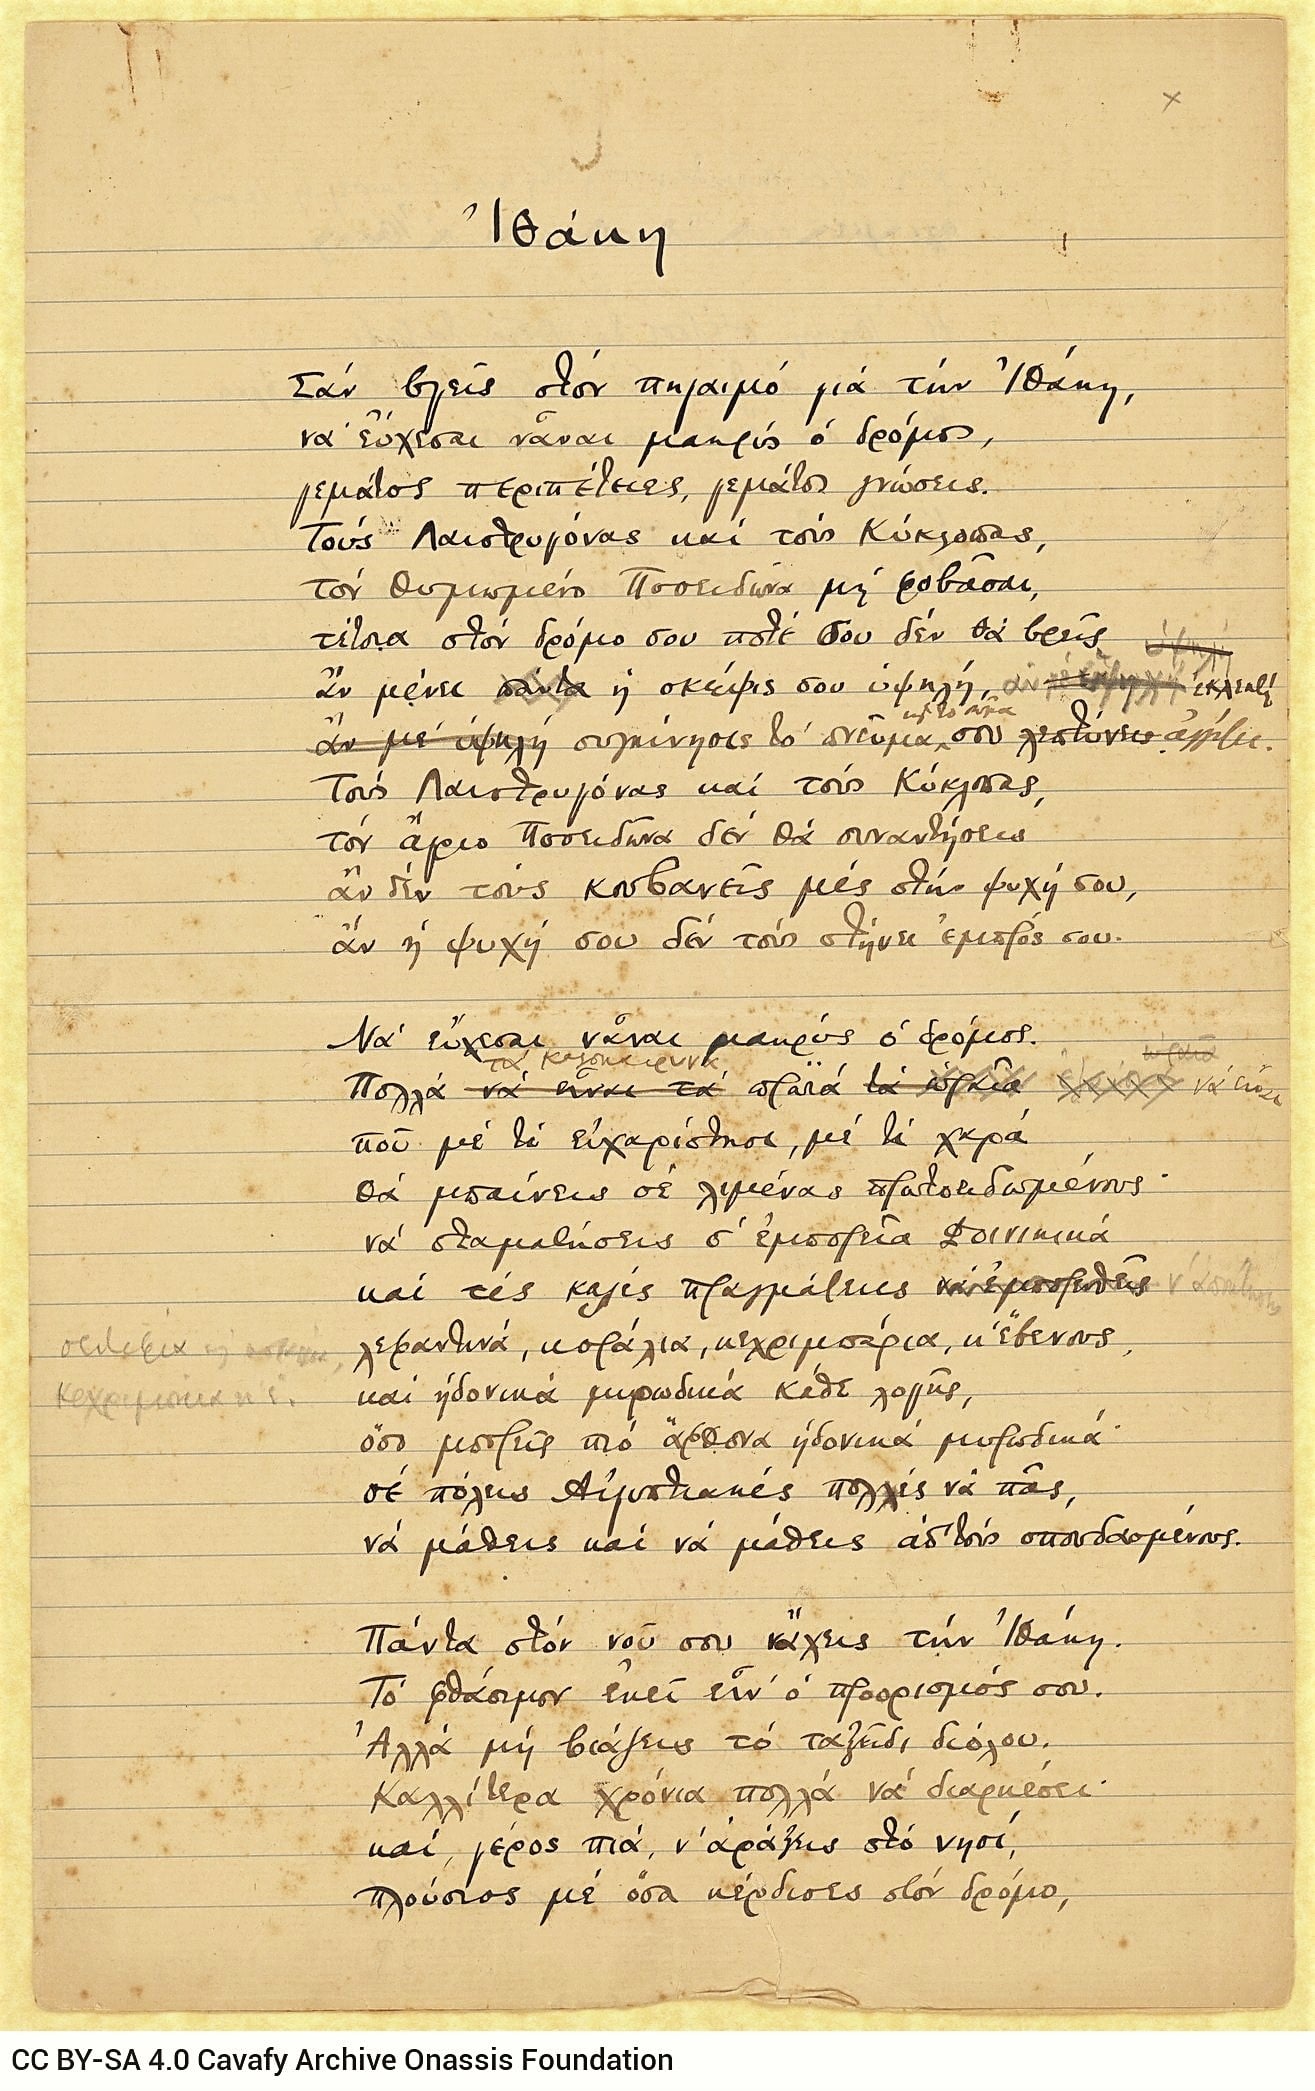 Ἰθάκη
Σάν βγεῖς στόν πηγαιμό γιά τήν Ἰθάκη,
νά εὔχεσαι νἆναι μακρύς ὁ δρόμος,
γεμάτος περιπέτειες, γεμάτος γνώσεις.
Τούς Λαιστρυγόνας καί τούς Κύκλωπας,
τόν θυμωμένο Ποσειδῶνα μή φοβᾶσαι,
τέτοια στόν δρόμο σου ποτέ σου δέν θά βρεῖς
ὑψηλή
ἄν μένει πάντα ἡ σκέψις σου ὑψηλή, ἄν ἐκλεκτή
κ̣αί τό σῶμα
ἄν μέ ὑψηλή συγκίνησις τό πνεῦμα σου λεπτύνεις ἀγγίζει.
Τούς Λαιστρυγόνας καί τούς Κύκλωπας,
τόν ἄγριο Ποσειδῶνα δέν θά συναντήσεις
ἄν δέν τούς κουβανεῖς μές στήν ψυχή σου,
ἄν ἡ ψυχή σου δέν τούς στήνει ἐμπρός σου.
Νά εὔχεσαι νἆναι μακρύς ὁ δρόμος.
τά καλοκαιρινά ὡραῖα
Πολλά νά εἶναι τά πρωϊά τά ὡραῖα νά εἶναι
πού μέ τί εὐχαρίστησι, μέ τί χαρά
θά μπαίνεις σέ λιμένας πρωτοειδωμένους·
νά σταματήσεις σ' ἐμπορεῖα Φοινικικά
καί τές καλές πραγμάτειες νά ἐμπορευθεῖς ν' ἀποκτήσεις
σεντέφια
λεφαντινά, κοράλια, κεχριμπάρια, κ' ἔβενους,
κεχριμπάρια κ' ἔ.
καί ἡδονικά μυρωδικά κάθε λογῆς,
ὅσο μπορεῖς πιό ἄφθονα ἡδονικά μυρωδικά·
σέ πόλεις Αἰγυπτιακές πολλές νά πᾶς,
νά μάθεις καί νά μάθεις ἀπ' τούς σπουδασμένους.
Πάντα στόν νοῦ σου νἄχεις τήν Ἰθάκη.
Τό φθάσιμον ἐκεῖ εἶν' ὁ προορισμός σου.
Ἀλλά μή βιάζεις τό ταξεῖδι διόλου.
Καλλίτερα χρόνια πολλά νά διαρκέσει·
καί, γέρος πιά, ν' ἀράξεις στό νησί,
πλούσιος μέ ὅσα κέρδισες στόν δρόμο,
CC BY-SA 4.0 Cavafy Archive Onassis Foundation